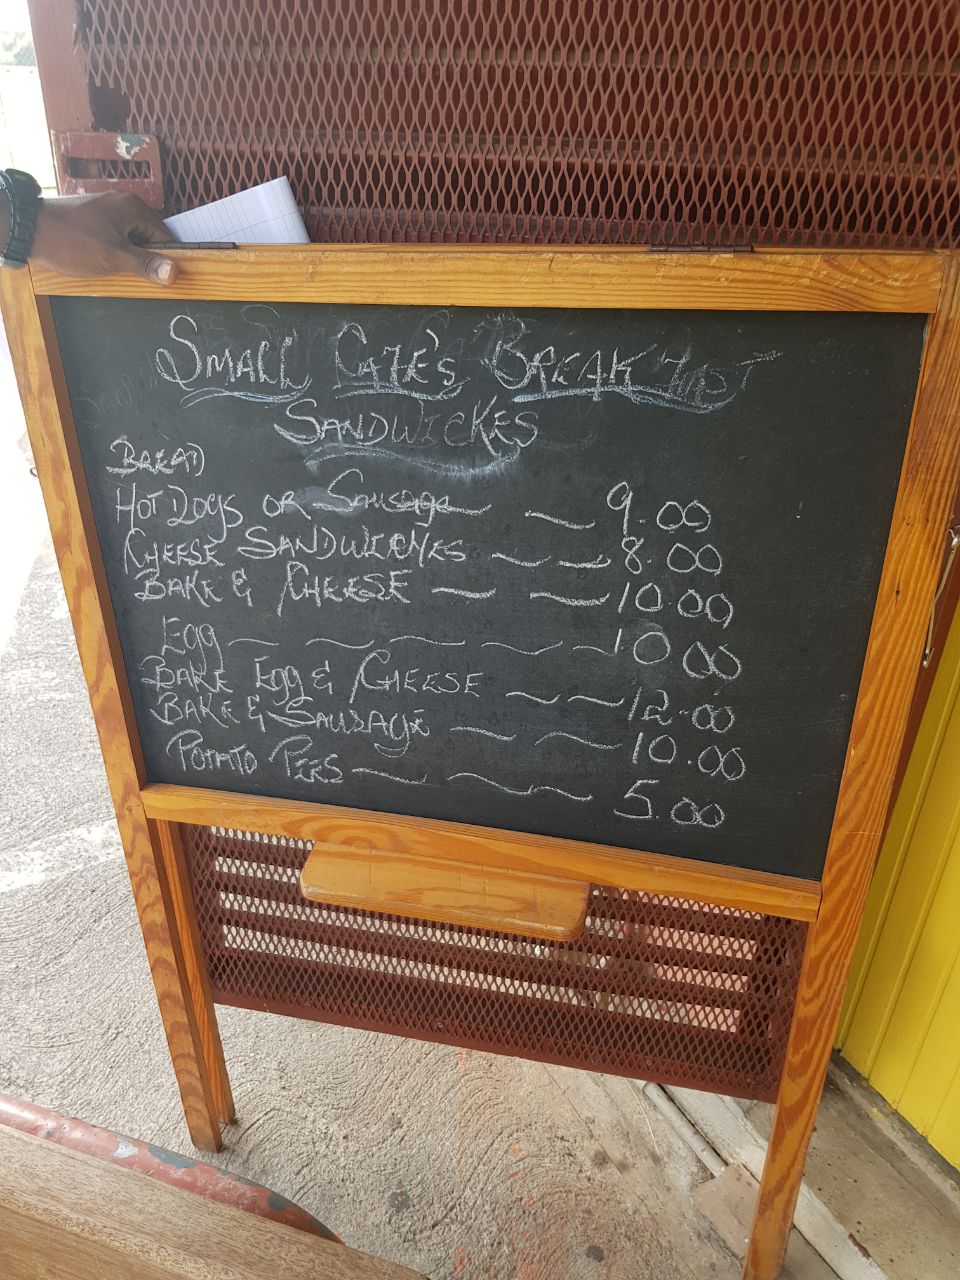 SMALL CAFE'S BREAKFAST
SANDWICKES
BREAD
HOT DOGS OR SAUSAGE 9.00
CHEESE SANDWICHES 8.00
BAKE & CHEESE 10.00
EGG 10 00
BAKE EGG & CHEESE 12.00
BAKE & SAUSAGE 10.00
POTATO PIES 5.00